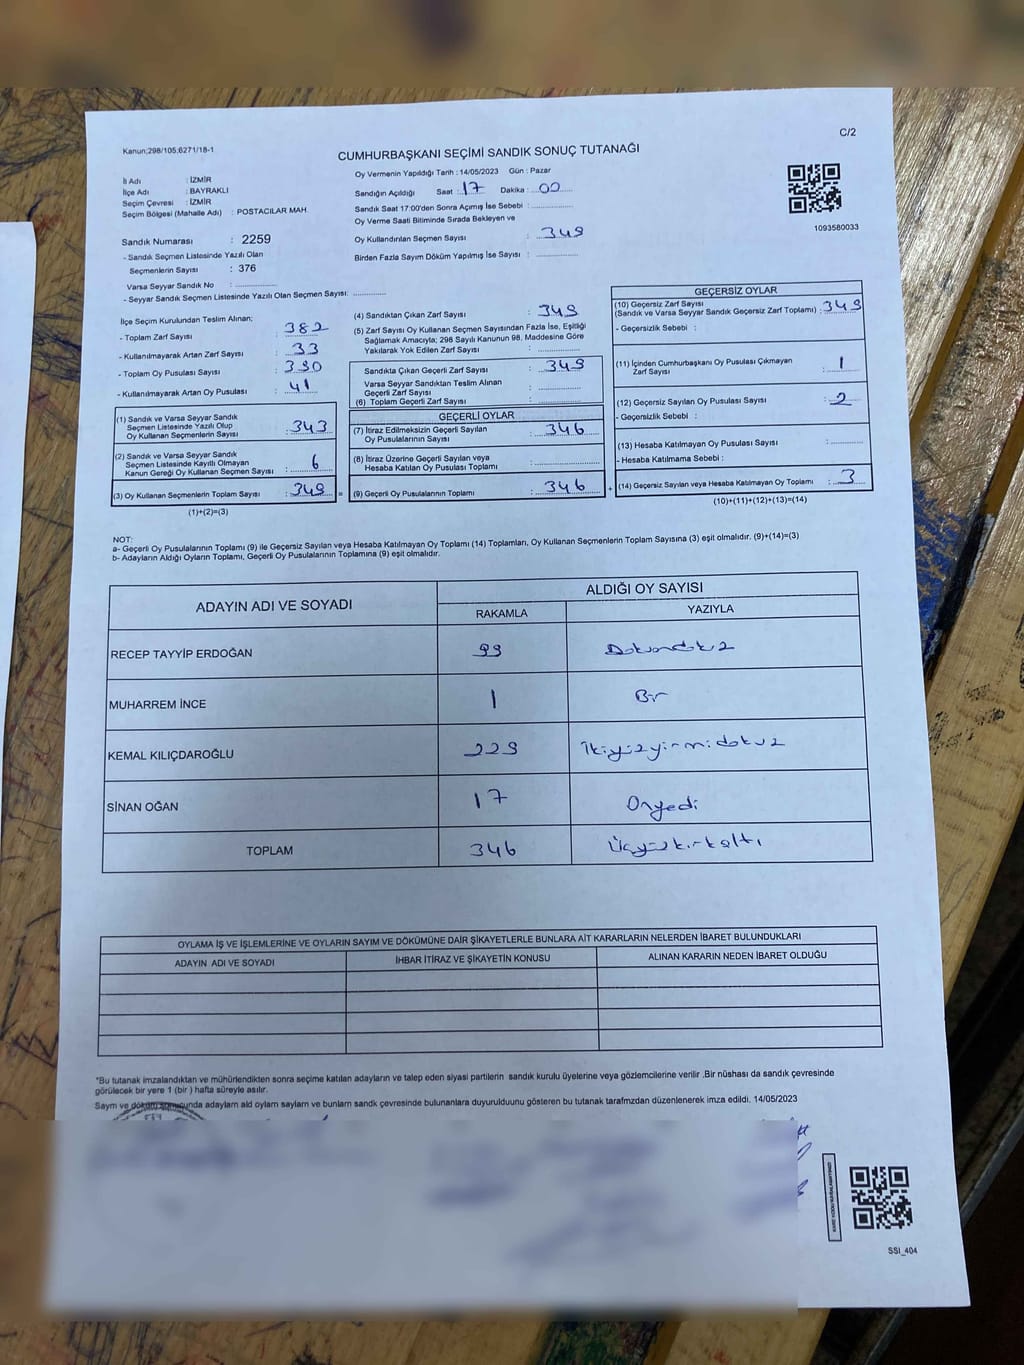 C/2
Kanun;298/105;6271/18-1
CUMHURBAŞKANI SEÇİMİ SANDIK SONUÇ TUTANAĞI
İl Adı : İZMİR
İlçe Adı : BAYRAKLI
Seçim Çevresi : İZMİR
Seçim Bölgesi (Mahalle Adı) : POSTACILAR MAH.
Sandık Numarası : 2259
- Sandık Seçmen Listesinde Yazılı Olan
Seçmenlerin Sayısı : 376
Varsa Seyyar Sandık No :
- Seyyar Sandık Seçmen Listesinde Yazılı Olan Seçmen Sayısı:
Oy Vermenin Yapıldığı Tarih : 14/05/2023 Gün : Pazar
Sandığın Açıldığı Saat : 17 Dakika : 00
Sandık Saat 17:00'den Sonra Açımış İse Sebebi :
Oy Verme Saati Bitiminde Sırada Bekleyen ve
Oy Kullandırılan Seçmen Sayısı : 349
Birden Fazla Sayım Döküm Yapılmış İse Sayısı :
1093580033
İlçe Seçim Kurulundan Teslim Alınan;
- Toplam Zarf Sayısı : 382
- Kullanılmayarak Artan Zarf Sayısı : 33
- Toplam Oy Pusulası Sayısı : 390
- Kullanılmayarak Artan Oy Pusulası : 41
(1) Sandık ve Varsa Seyyar Sandık
Seçmen Listesinde Yazılı Olup
Oy Kullanan Seçmenlerin Sayısı : 343
(2) Sandık ve Varsa Seyyar Sandık
Seçmen Listesinde Kayıtlı Olmayan
Kanun Gereği Oy Kullanan Seçmen Sayısı : 6
(3) Oy Kullanan Seçmenlerin Toplam Sayısı : 349
(1)+(2)=(3)
(4) Sandıktan Çıkan Zarf Sayısı : 349
(5) Zarf Sayısı Oy Kullanan Seçmen Sayısından Fazla İse, Eşitliği
Sağlamak Amacıyla; 298 Sayılı Kanunun 98. Maddesine Göre
Yakılarak Yok Edilen Zarf Sayısı :
Sandıkta Çıkan Geçerli Zarf Sayısı : 349
Varsa Seyyar Sandıktan Teslim Alınan
Geçerli Zarf Sayısı :
(6) Toplam Geçerli Zarf Sayısı :
GEÇERLİ OYLAR
(7) İtiraz Edilmeksizin Geçerli Sayılan
Oy Pusulalarının Sayısı : 346
(8) İtiraz Üzerine Geçerli Sayılan veya
Hesaba Katılan Oy Pusulası Toplamı :
= (9) Geçerli Oy Pusulalarının Toplamı : 346
GEÇERSİZ OYLAR
(10) Geçersiz Zarf Sayısı
(Sandık ve Varsa Seyyar Sandık Geçersiz Zarf Toplamı) : 349
- Geçersizlik Sebebi :
(11) İçinden Cumhurbaşkanı Oy Pusulası Çıkmayan
Zarf Sayısı : 1
(12) Geçersiz Sayılan Oy Pusulası Sayısı : 2
- Geçersizlik Sebebi :
(13) Hesaba Katılmayan Oy Pusulası Sayısı :
- Hesaba Katılmama Sebebi :
+ (14) Geçersiz Sayılan veya Hesaba Katılmayan Oy Toplamı : 3
(10)+(11)+(12)+(13)=(14)
NOT:
a- Geçerli Oy Pusulalarının Toplamı (9) ile Geçersiz Sayılan veya Hesaba Katılmayan Oy Toplamı (14) Toplamları, Oy Kullanan Seçmenlerin Toplam Sayısına (3) eşit olmalıdır. (9)+(14)=(3)
b- Adayların Aldığı Oyların Toplamı, Geçerli Oy Pusulalarının Toplamına (9) eşit olmalıdır.
ADAYIN ADI VE SOYADI
ALDIĞI OY SAYISI
RAKAMLA YAZIYLA
RECEP TAYYİP ERDOĞAN 99 Doksandokuz
MUHARREM İNCE 1 Bir
KEMAL KILIÇDAROĞLU 229 İkiyüzyirmidokuz
SİNAN OĞAN 17 Onyedi
TOPLAM 346 Üçyüzkırkaltı
OYLAMA İŞ VE İŞLEMLERİNE VE OYLARIN SAYIM VE DÖKÜMÜNE DAİR ŞİKAYETLERLE BUNLARA AİT KARARLARIN NELERDEN İBARET BULUNDUKLARI
ADAYIN ADI VE SOYADI İHBAR İTİRAZ VE ŞİKAYETİN KONUSU ALINAN KARARIN NEDEN İBARET OLDUĞU
*Bu tutanak imzalandıktan ve mühürlendikten sonra seçime katılan adayların ve talep eden siyasi partilerin sandık kurulu üyelerine veya gözlemcilerine verilir .Bir nüshası da sandık çevresinde
görülecek bir yere 1 (bir ) hafta süreyle asılır.
Sayım ve döküm sonucunda adayların aldı oyların sayların ve bunların sandk çevresinde bulunanlara duyurulduunu gösteren bu tutanak tarafmzdan düzenlenerek imza edildi. 14/05/2023
SSI_404